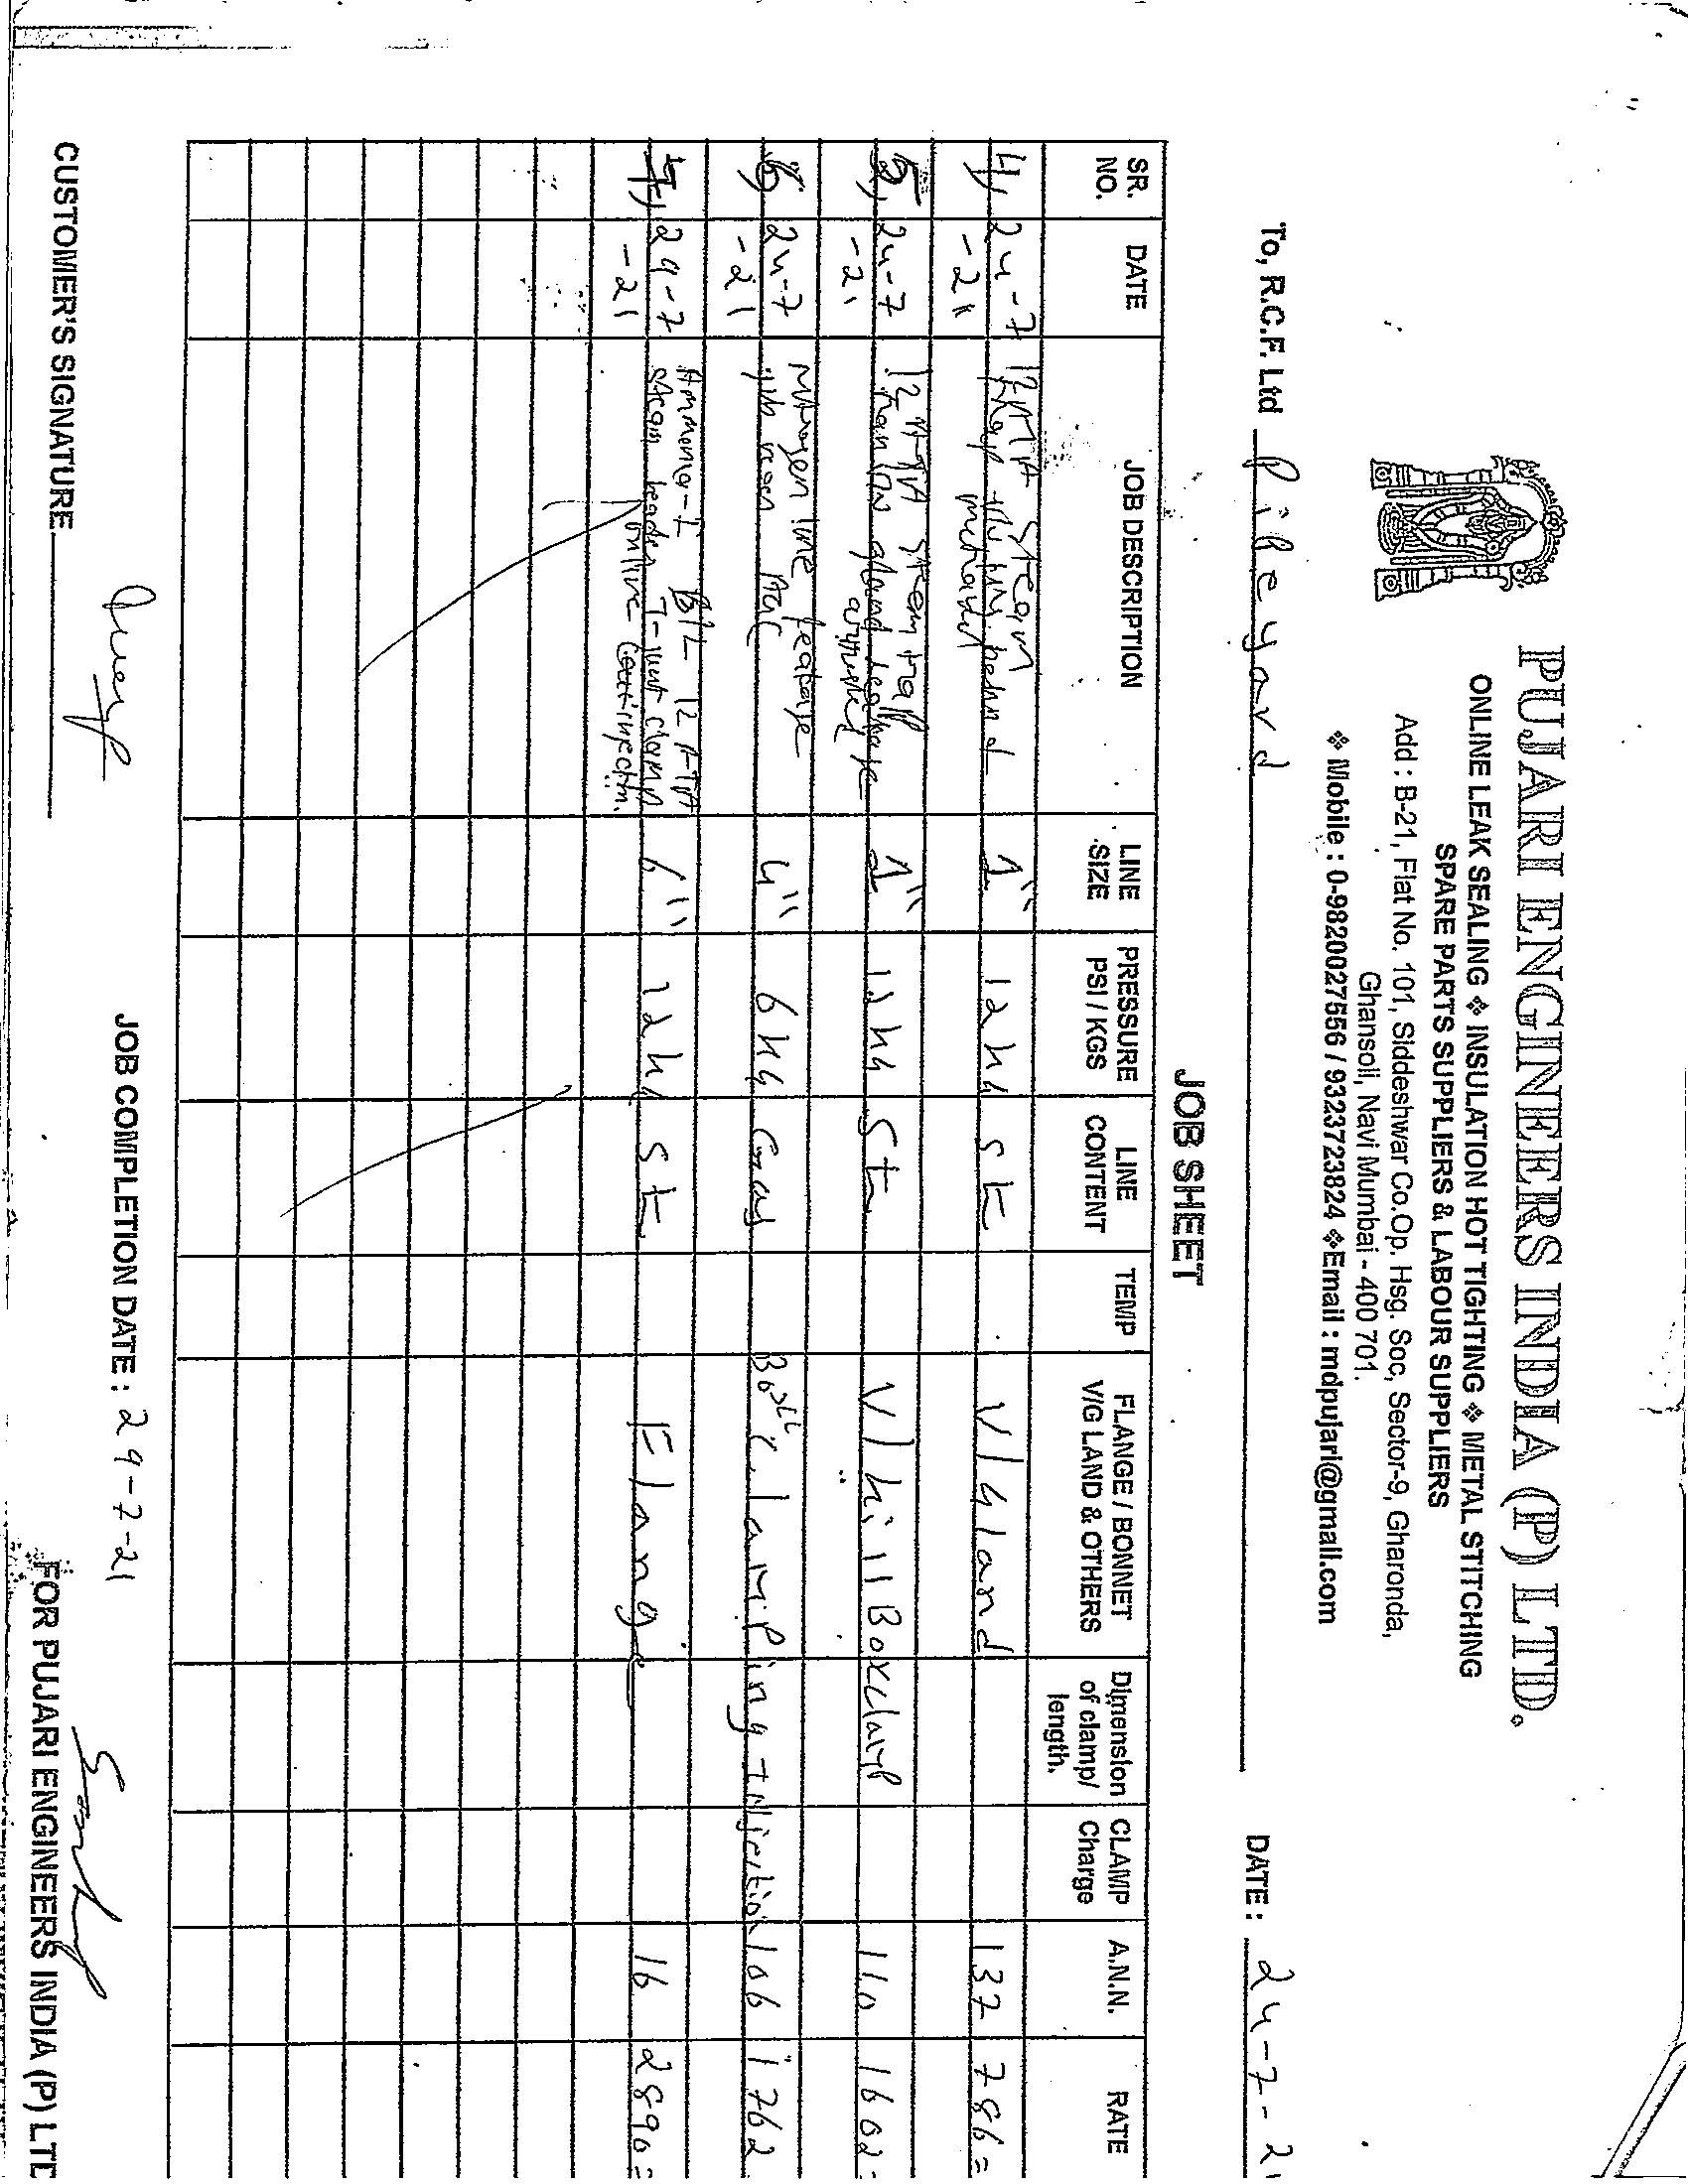 PUJARI ENGINEERS INDIA (P) LTD.
ONLINE LEAK SEALING ❖ INSULATION HOT TIGHTING ❖ METAL STITCHING
SPARE PARTS SUPPLIERS & LABOUR SUPPLIERS
Add : B-21, Flat No. 101, Siddeshwar Co.Op. Hsg. Soc, Sector-9, Gharonda,
Ghansoli, Navi Mumbai - 400 701.
❖ Mobile : 0-9820027656 / 9323723824 ❖ Email : mdpujari@gmail.com
To, R.C.F. Ltd PiPeyard DATE : 24-7-21
JOB SHEET
SR. NO. DATE JOB DESCRIPTION LINE SIZE PRESSURE PSI / KGS LINE CONTENT TEMP FLANGE / BONNET V/G LAND & OTHERS Dimension of clamp/ length. CLAMP Charge A.N.N. RATE
4, 24-7-21 12 ATA Steam 1" 12 kg st V/Gland 137 786=
5, 24-7-21 12 ATA steam trap gland leakage 1" 12 kg st V/ Boxclamp 110 1602-
6, 24-7-21 Nitrogen line leakage 4" 6 kg Gas Clamping + Injection 106 1762
7, 29-7-21 Ammonia-I B/L 12 ATA steam header T-joint clamp online injection. 6" 12 kg st Flange 16 2890=
CUSTOMER'S SIGNATURE
JOB COMPLETION DATE : 29-7-21
FOR PUJARI ENGINEERS INDIA (P) LTD